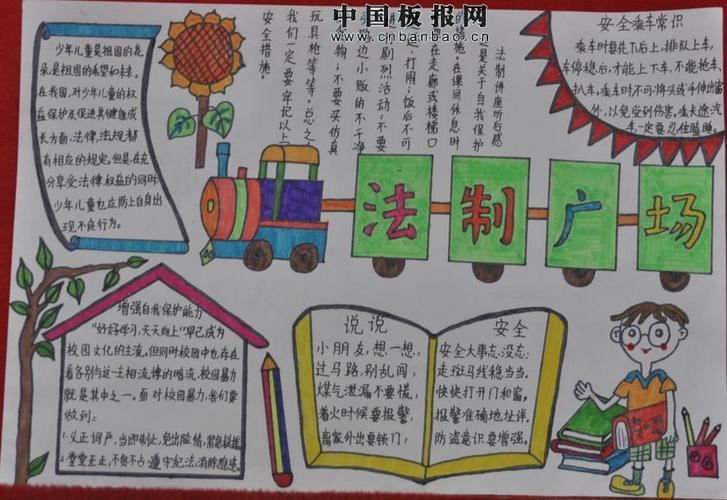 中国板报网
www.cnbanbao.cn
少年儿童是祖国的花
朵,是祖国的希望和未来。
在我国,对少年儿童的权
益保护及促进其健康成
长方面,法律,法规都
有相应的规定。但是在充
分享受法律权益的同时
少年儿童也应防止自身出
现不良行为。
法制讲座听后感
是关于自我保护
的措施。在课间休息时
在走廊或楼梯口
打闹;饭后不可
进剧烈活动;不要
边小贩的不干净
食物;不要买仿真
玩具枪等等。总之,
我们一定要牢记以上
安全措施。
安全乘车常识
乘车时要先下后上,排队上车,
车停稳后,才能上下车,不能抢车、
扒车。乘车时不可将头或手伸出窗
外,以免受到伤害。坐长途汽
车一定要忍住瞌睡。
法制广场
增强自我保护能力
“好好学习,天天向上”早已成为
校园文化的主流。但同时校园中也存在
着各别与这一主相流,悖的暗流,校园暴力
就是其中之一。面对校园暴力,我们要
做到:
1.义正词严,当即制止,免出险情,紧急求援
2.堂堂正正,不贪不占,遵守纪法,消除隐患。
说说
小朋友,想一想,
过马路,别乱闯,
煤气泄漏不要慌,
着火时候要报警,
离家外出要锁门,
安全
安全大事忘没忘:
走斑马线稳当当。
快快打开门和窗。
报警准确地址详。
防盗意识要增强。